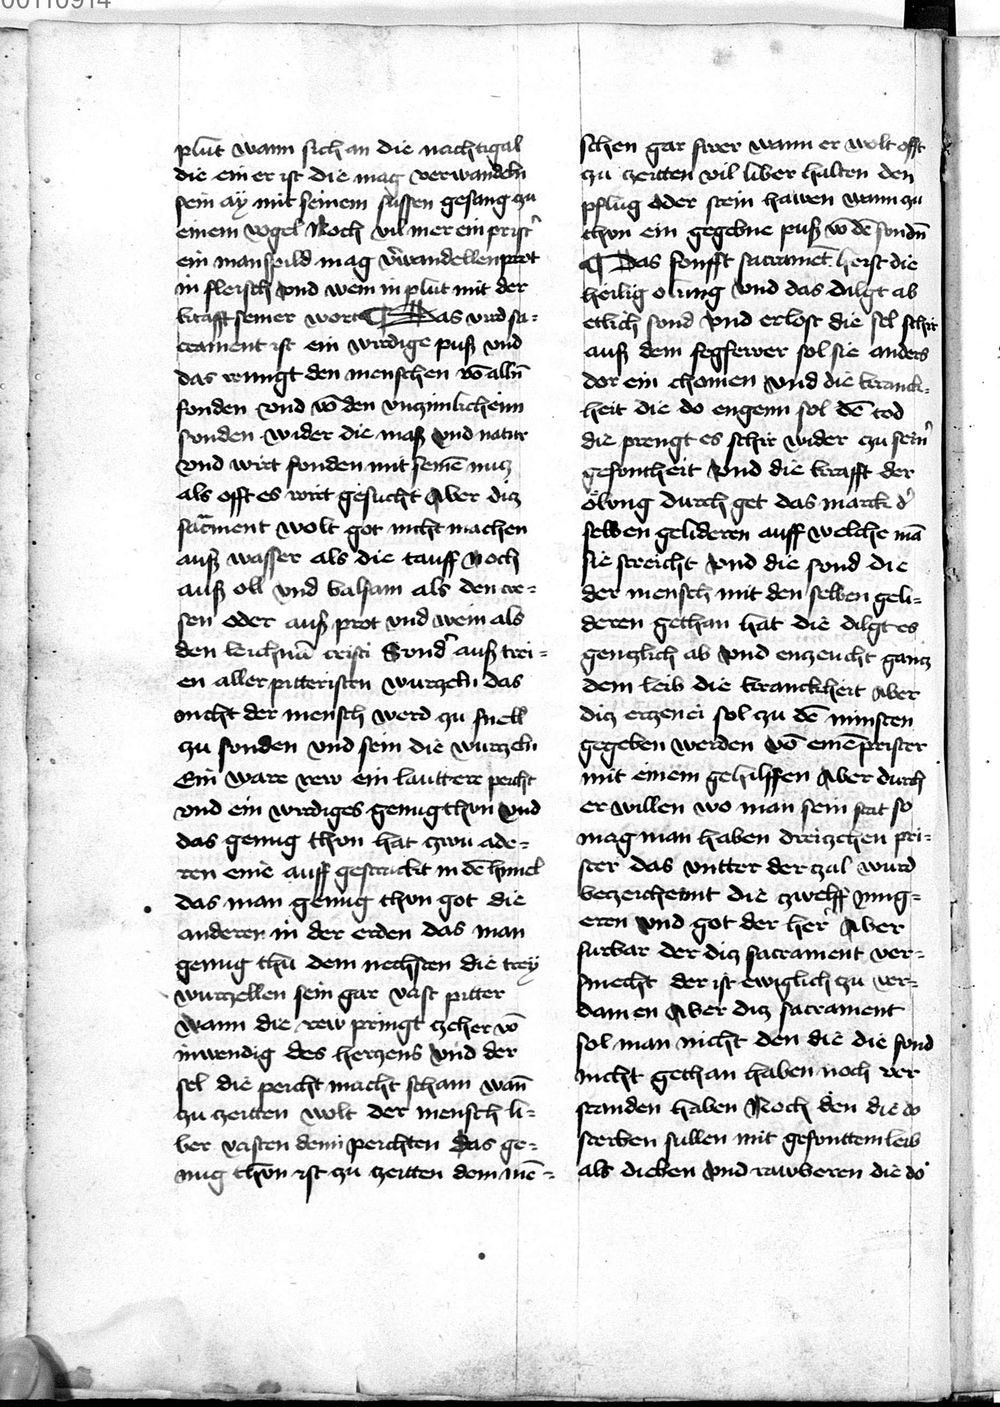 00110914
plut wann sich an die nachtigal
die ein er ist die mag verwandeln
sein ay mit seinem sussen gesang zu
einem vogel Noch vil mer ein prist̓
ein manspild mag v̓wandellen prot
in fleisch vnd wein in plut mit der
krafft seiner wort ¶ Das vird sa-
crament ist ein wirdige puß vnd
das reinigt den menschen vō alln̄
sonden vnd vō den vnzimlicheinn
sonden wider die maß vnd natur
vnd wirt fonden mit seinē nucz
als offt es wirt gesucht Aber dicz
sac̄ment wolt got nicht machen
auß wasser als die tauff Noch
auß oll vnd balsam als den cre-
sen oder auß prot vnd wein als
den leichnā cristi Sond̓ auß trei-
en aller pitteristen wurczeln das
nicht der mensch werd zu snell
zu sonden vnd sein die wurczeln
Ein ware rew ein lauttere peicht
vnd ein wirdiges genugthon vnd
das genug thon hat zwu ade-
ren eine auff gestrackt in dē himel
das man genug thon got die
anderen in der erden das man
genug thu dem nechsten die trey
wurczellen sein gar vast pitter
wann die rew pringt zcher vō
inwendig des herczens vnd der
sel die peicht macht scham wan̄
zu zeitten wolt der mensch li-
ber vasten denn peichten das ge-
nug thon ist zu zeitten dem mē-
schen gar swer wann er wolt offt
zu zeitten vil liber halten den
pflug oder stein hawen wann zu
thon ein gegebne puß vō dē sondn̄
¶ Das fonfft sacramēt heist die
heilig olung vnd das dilgt ab
etlich sond vnd erlost die sel schir
auß dem fegfewer sol sie anders
dor ein chomen vnd die kranck-
heit die do engenn sol dē tod
die prengt es schir wider czu sein̓
gesontheit vnd die krafft der
ölong durch get das marck d̓
selben gelideren auff welche mā
sie streicht vnd die sond die
der mensch mit den selben geli-
deren gethan hat die dilgt es
genczlich ab vnd enzeucht gancz
dem leib die kranckheit Aber
dicz erczenei sol zu dē minsten
gegeben werden vō einē prister
mit einem gehilffen Aber durch
er willen wo man sein stat so
mag man haben dreizehen pri-
ster das vntter der zal wurd
beczeichennt die zwelff iung-
eren vnd got der her Aber
furbar der dicz sacrament ver-
smecht der ist ewiglich zu ver-
damen Aber dicz sacrament
sol man nicht den die die sond
nicht gethan haben noch ver
standen haben Noch den die do
sterben sullen mit gesonttem leib
als dieben vnd rawberen die do